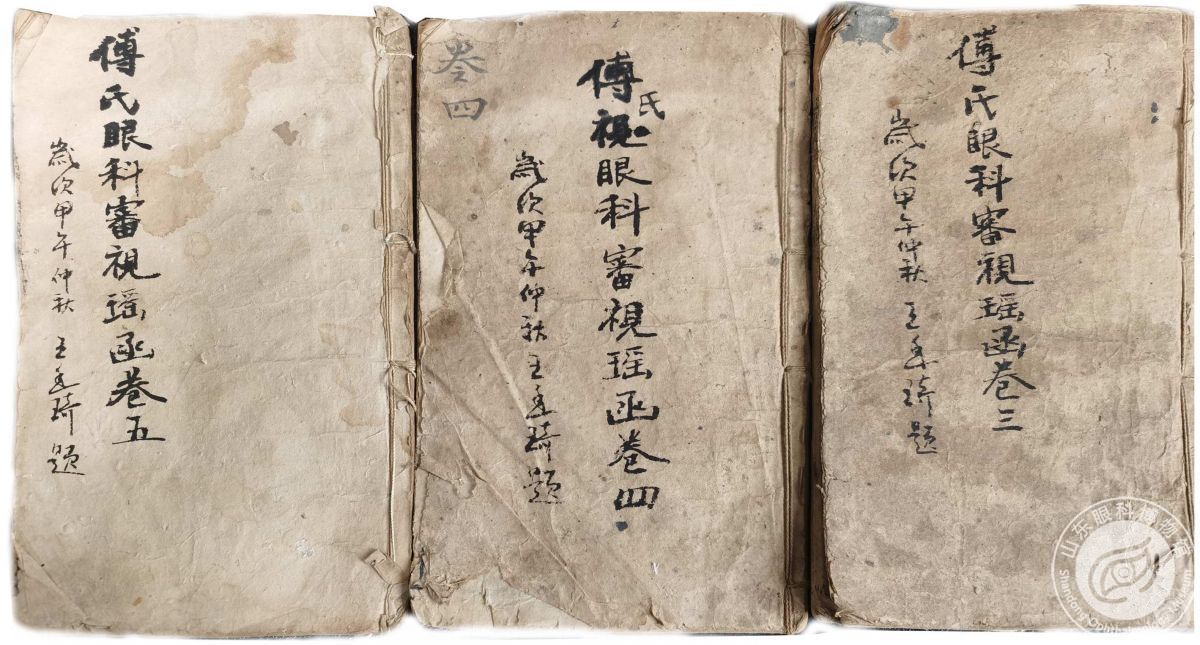 傅氏眼科審視瑶函卷三
歲次甲午仲秋 王琦題
卷四
傅氏視眼科審視瑶函卷四
歲次甲午仲秋 王琦題
傅氏眼科審視瑶函卷五
歲次甲午仲秋 王琦題
山东眼科博物馆
Shandong Ophthalmology Museum